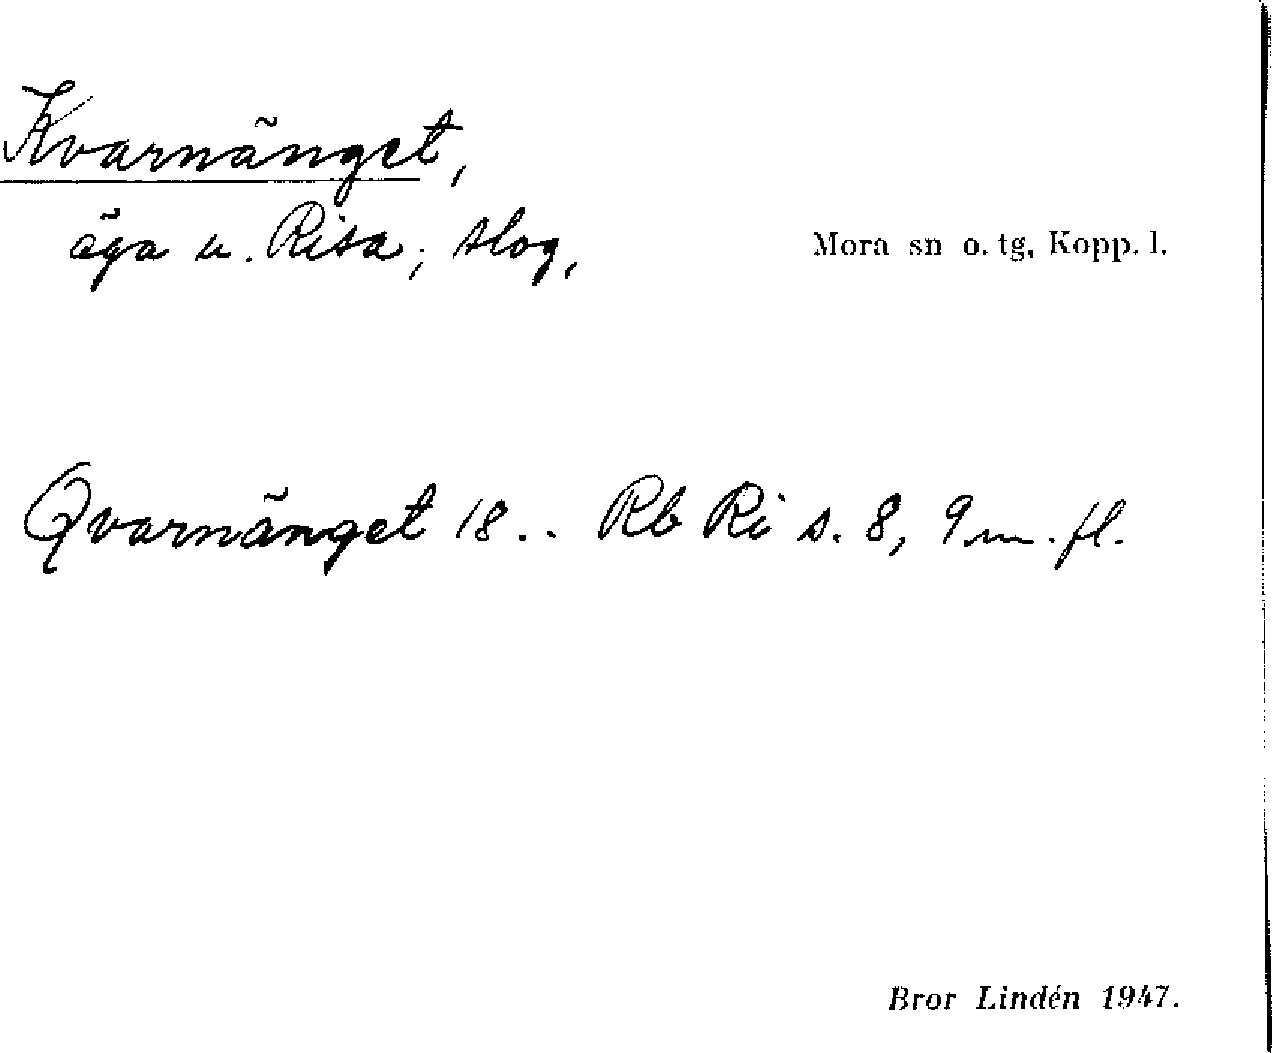 Kvarnänget,
äga u. Risa; slog,
Mora sn o. tg, Kopp. l.
Qvarnänget 18.. Rb Ri s. 8, 9 m. fl.
Bror Lindén 1947.